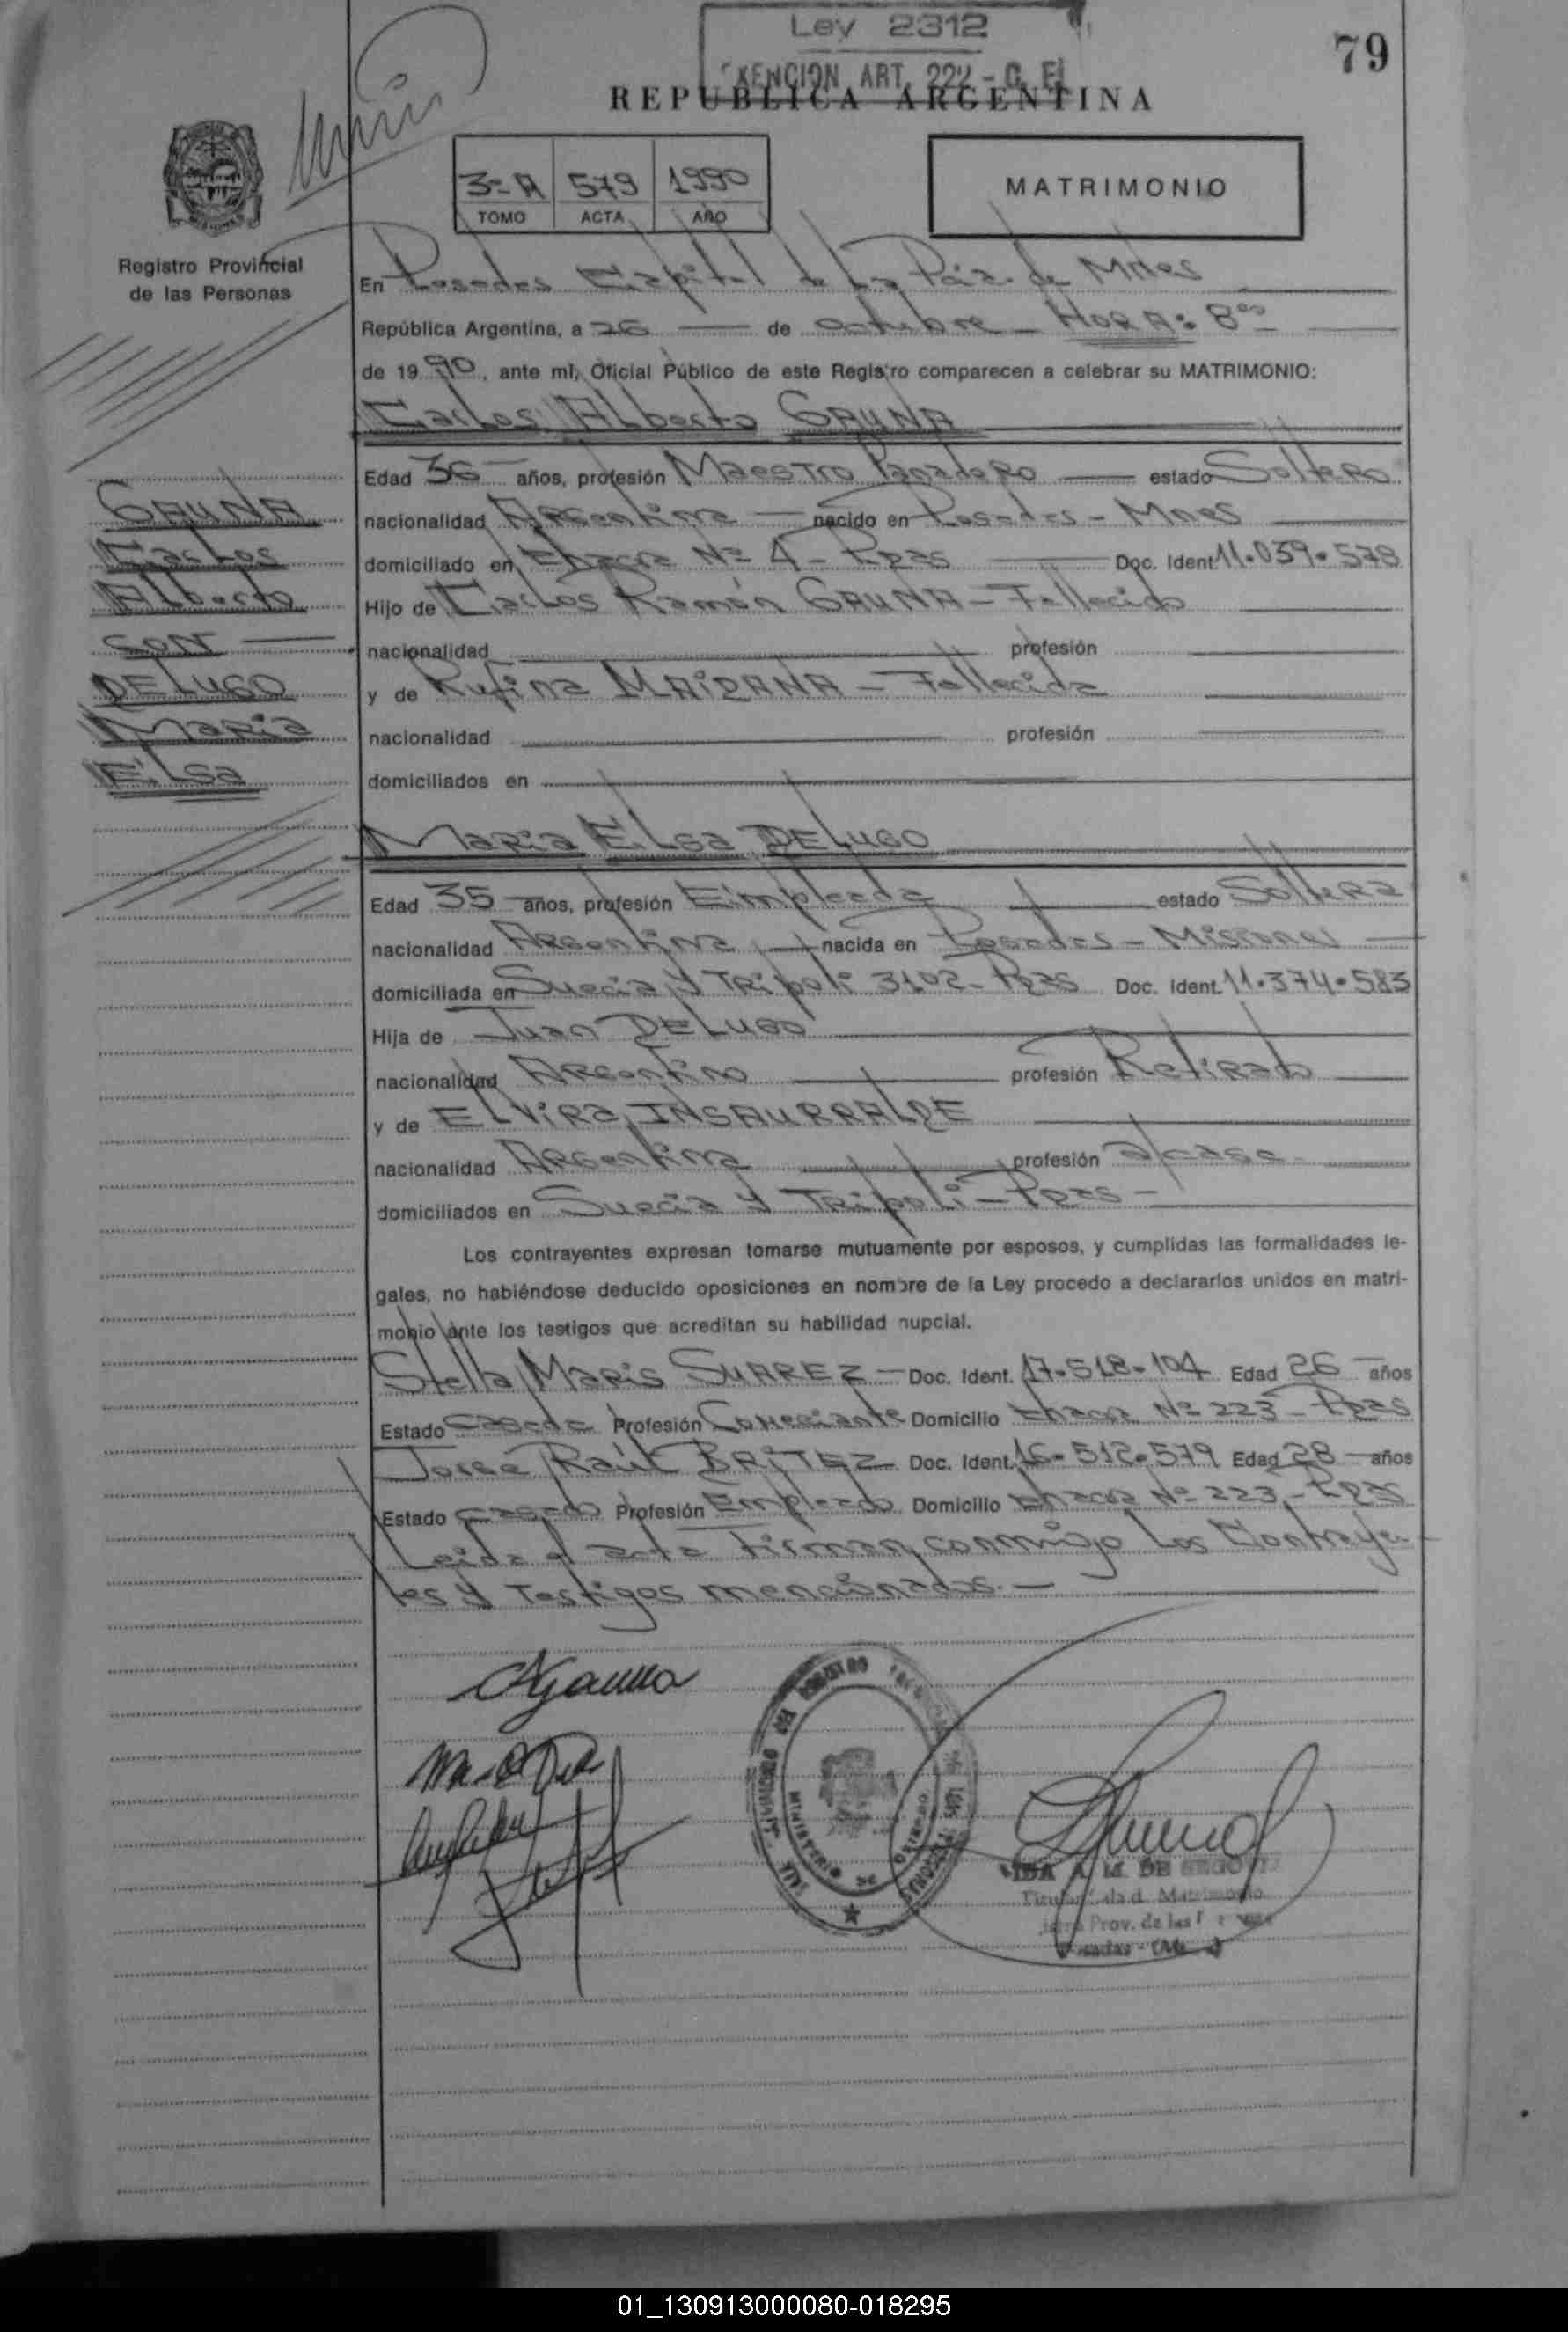 Ley 2312
EXENCION ART. 222 - C. F.
79
REPUBLICA ARGENTINA
3º A 579 1990
TOMO ACTA AÑO
MATRIMONIO
Registro Provincial
de las Personas
En Posadas Capital de la Pcia. de Mnes
República Argentina, a 26 de octubre - HORA: 8
de 1990, ante mí, Oficial Público de este Registro comparecen a celebrar su MATRIMONIO:
Carlos Alberto GAUNA
GAUNA
Carlos
Alberto
CON
DELUGO
Maria
Elsa
Edad 36 años, profesión Maestro Panadero estado Soltero
nacionalidad Argentina nacido en Posadas - Mnes
domiciliado en Chacra Nº 4 - Pdas Doc. Ident. 11.039.578
Hijo de Carlos Ramón GAUNA - Fallecido
nacionalidad profesión
y de Rufina MAIDANA - Fallecida
nacionalidad profesión
domiciliados en
Maria Elsa DELUGO
Edad 35 años, profesión Empleada estado Soltera
nacionalidad Argentina nacida en Posadas - Misiones
domiciliada en Suecia y Tripoli 3102 - Pdas Doc. Ident. 11.374.583
Hija de Juan DELUGO
nacionalidad Argentino profesión Retirado
y de ELVIRA INSAURRALDE
nacionalidad Argentina profesión a/casa
domiciliados en Suecia y Tripoli - Pdas -
Los contrayentes expresan tomarse mutuamente por esposos, y cumplidas las formalidades le-
gales, no habiéndose deducido oposiciones en nombre de la Ley procedo a declararlos unidos en matri-
monio ante los testigos que acreditan su habilidad nupcial.
Stella Maris SUAREZ - Doc. Ident. 17.518.104 Edad 26 años
Estado casada Profesión Comerciante Domicilio Chacra Nº 223 - Pdas
Jorge Raúl BRITEZ Doc. Ident. 16.512.579 Edad 28 años
Estado casado Profesión Empleado Domicilio Chacra Nº 223 - Pdas
Leida el acta Firman conmigo los Contrayen
tes y Testigos mencionados. -
CAGauna
MINISTERIO DE GOBIERNO
IDA A. M. DE SEGOVIA
Posadas - (Mnes)
01_130913000080-018295